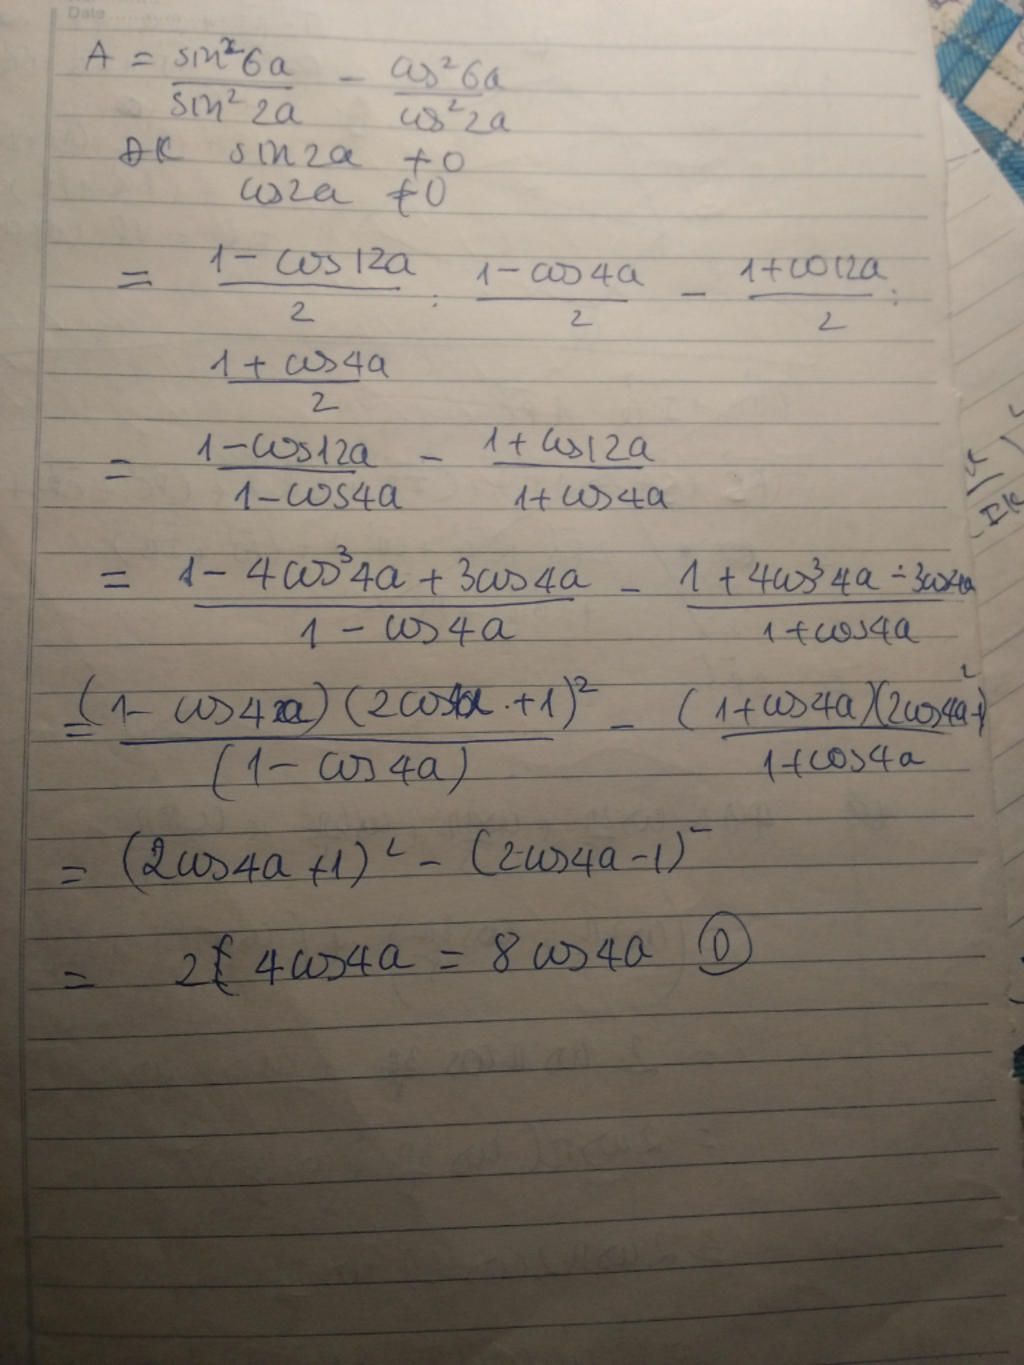 Date
A = sin²6a / sin²2a − cos²6a / cos²2a
ĐK sin2a ≠ 0
cos2a ≠ 0
= (1 − cos12a)/2 : (1 − cos4a)/2 − (1 + cos12a)/2 :
(1 + cos4a)/2
= (1 − cos12a)/(1 − cos4a) − (1 + cos12a)/(1 + cos4a)
= (1 − 4cos³4a + 3cos4a)/(1 − cos4a) − (1 + 4cos³4a − 3cos4a)/(1 + cos4a)
= (1 − cos4a)(2cos4a + 1)²/(1 − cos4a) − (1 + cos4a)(2cos4a − 1)²/(1 + cos4a)
= (2cos4a + 1)² − (2cos4a − 1)²
= 2 · 4cos4a = 8cos4a Ⓓ